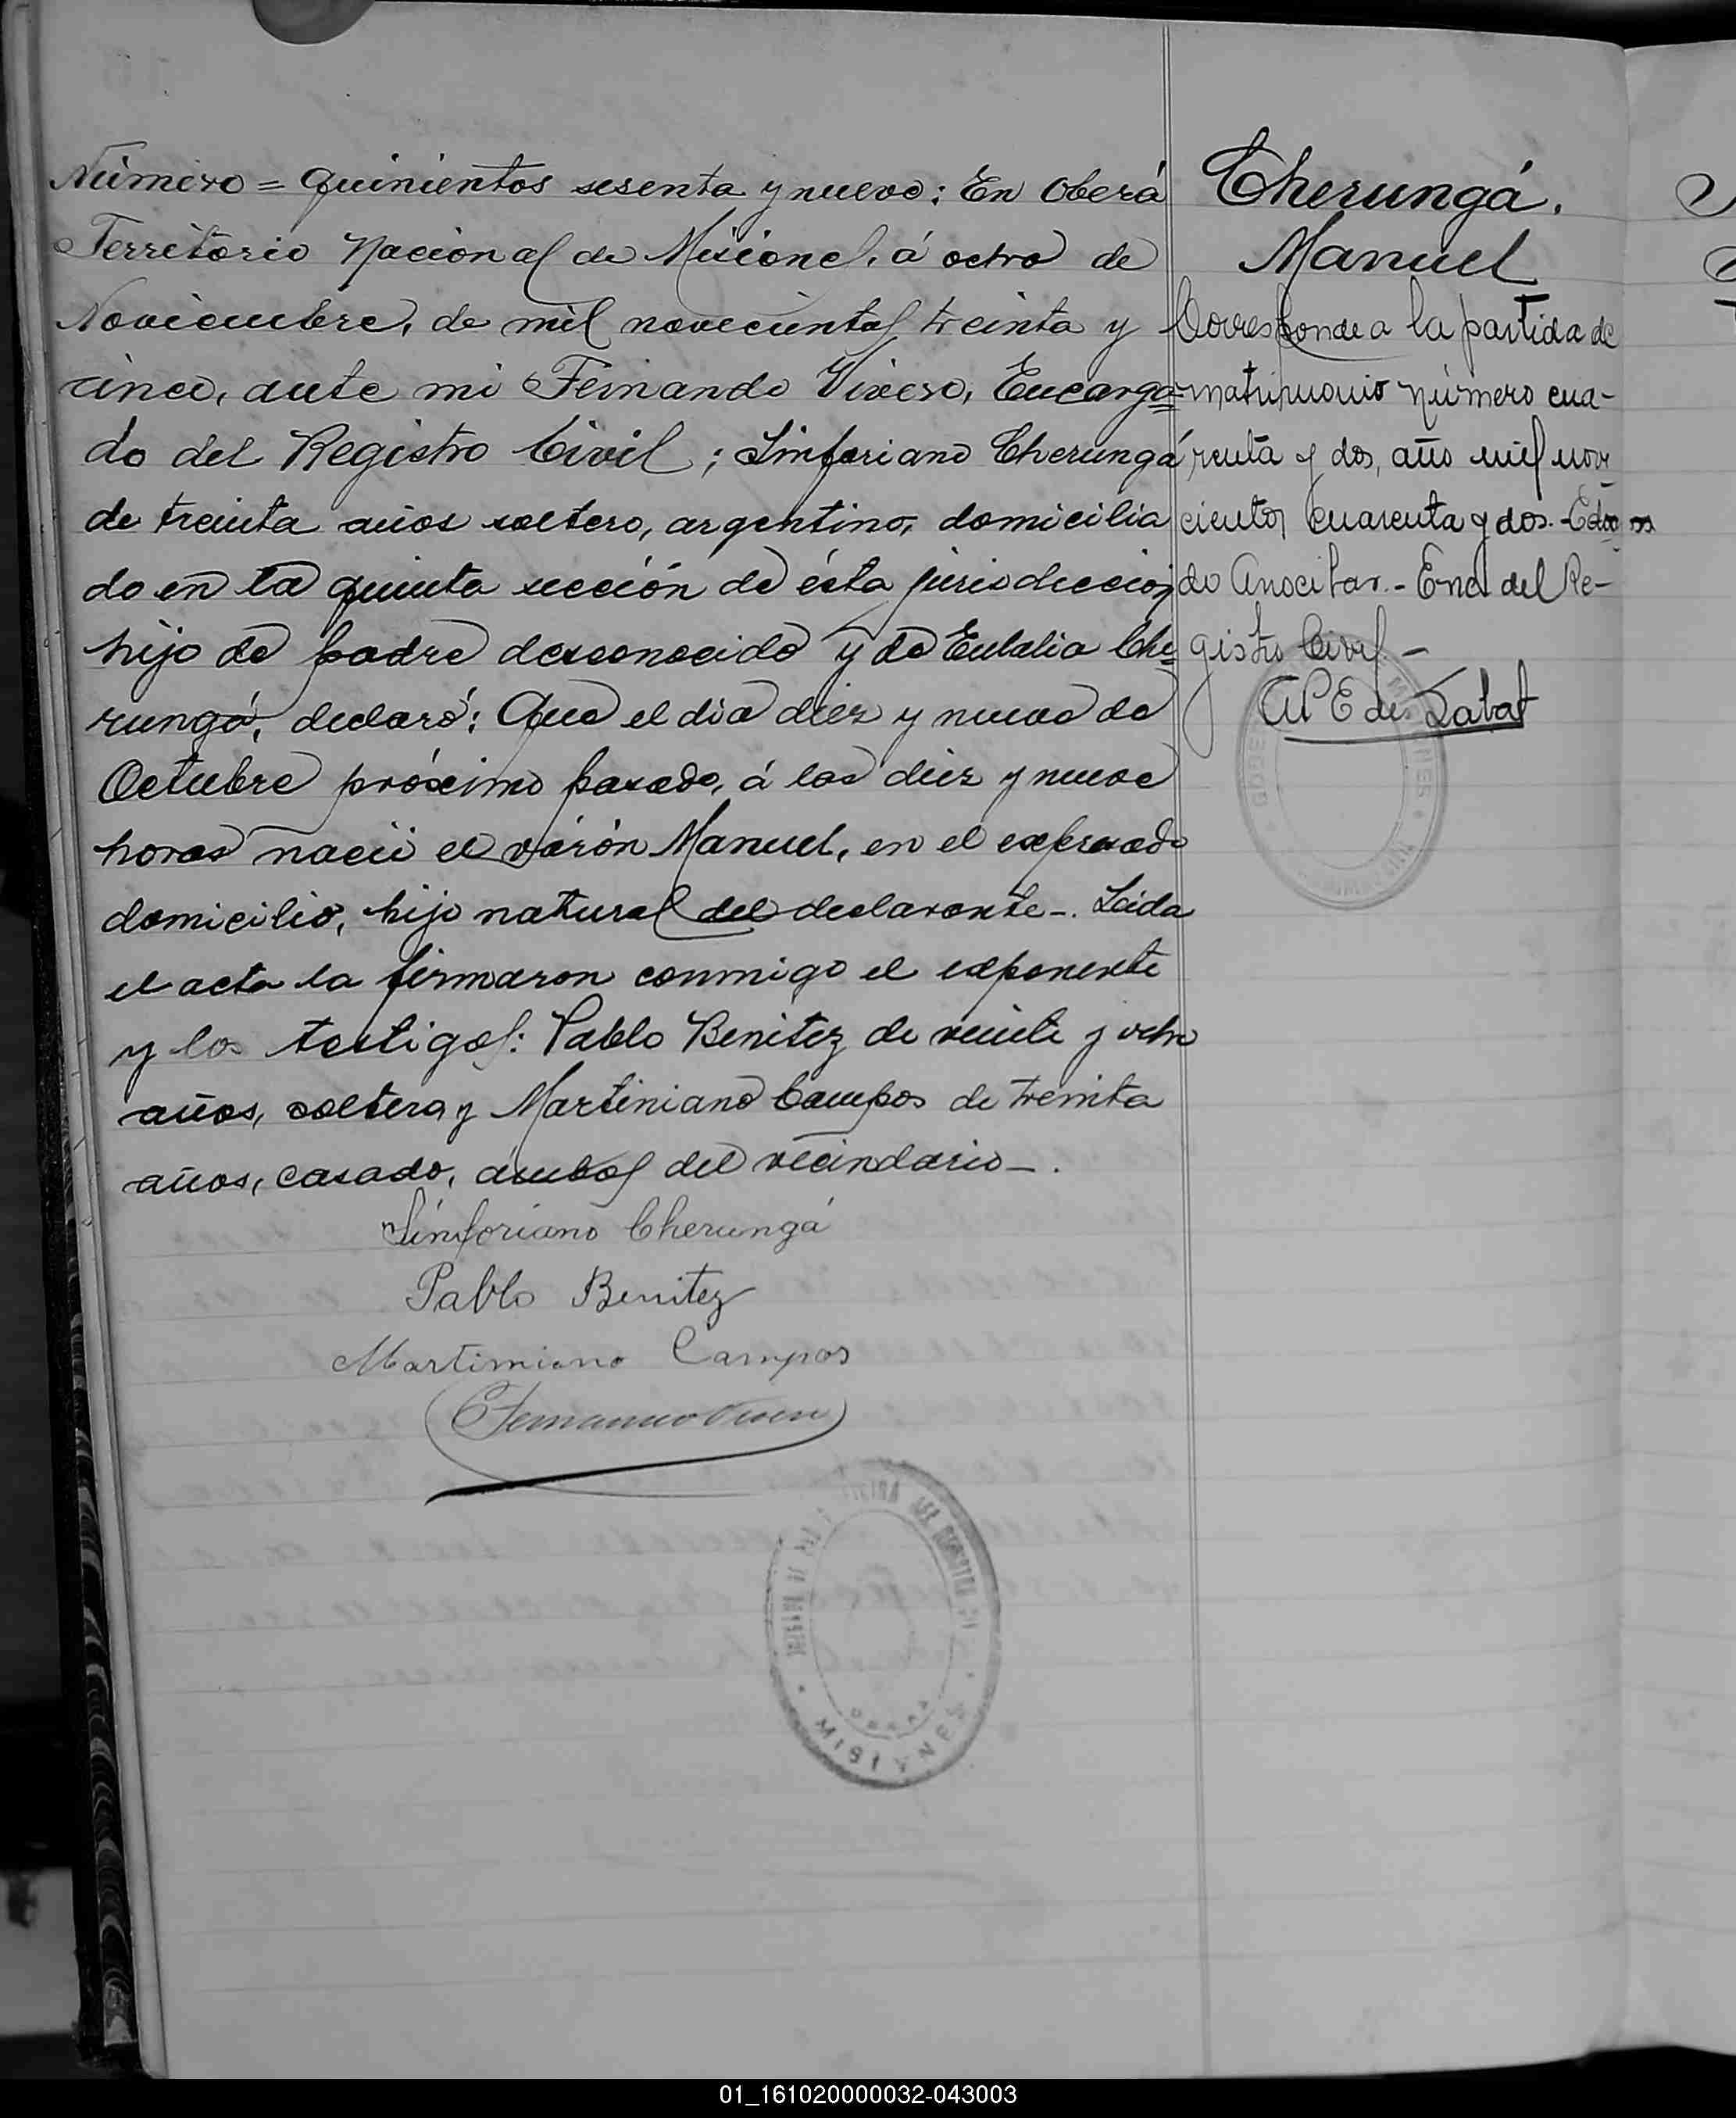 Número = quinientos sesenta y nueve; En Oberá
Territorio Nacional de Misiones, á ocho de
Noviembre, de mil novecientos treinta y
cinco, ante mi Fernando Vivero, Encarga=
do del Registro Civil; Sinforiano Cherungá
de treinta años soltero, argentino, domicilia
do en la quinta sección de ésta jurisdiccion,
hijo de padre desconocido y de Eulalia Che=
rungá, declaró: Que el dia diez y nueve de
Octubre próximo pasado, á las diez y nueve
horas nació el varón Manuel, en el expresado
domicilio, hijo natural del declarante-. Leida
el acta la firmaron conmigo el exponente
y los testigos: Pablo Benitez de veinte y ocho
años, soltero, y Martiniano Campos de treinta
años, casado, ámbos del vecindario-.
Sinforiano Cherungá
Pablo Benitez
Martimiano Campos
Fernando
MISIONES
Cherungá.
Manuel
Corresponde a la partida de
matrimonio número cua-
renta y dos, año mil nove
cientos cuarenta y dos.-
do - Enc del Re-
gistro Civil.-